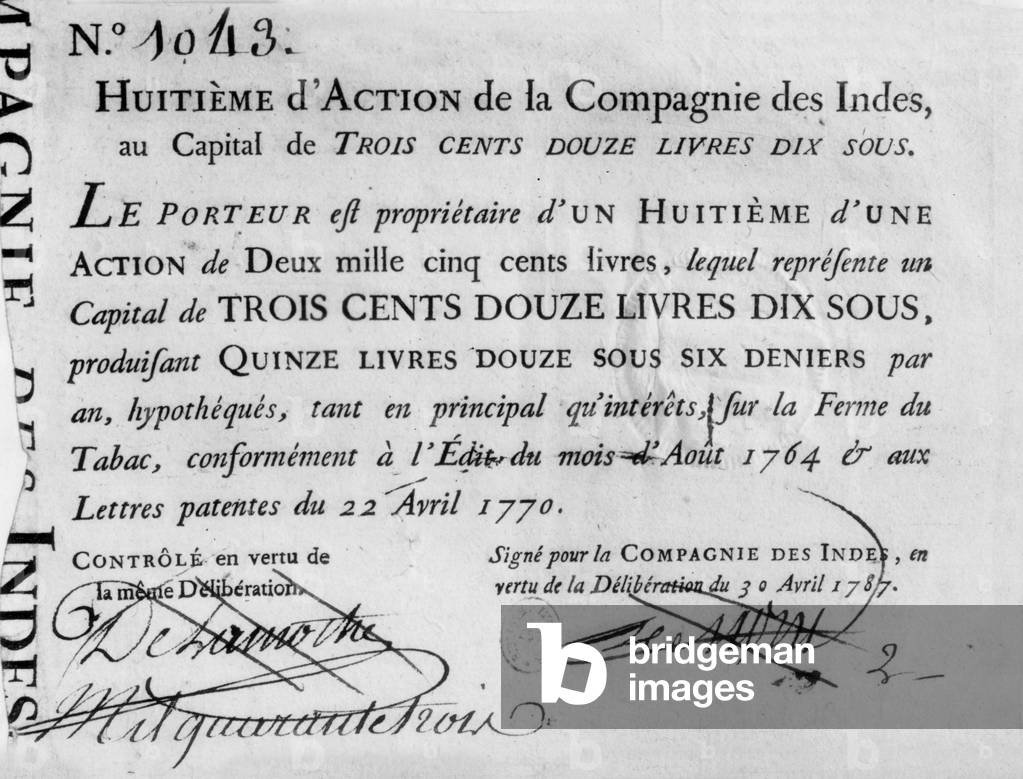 N.º 1043.
HUITIÈME d'ACTION de la Compagnie des Indes,
au Capital de TROIS CENTS DOUZE LIVRES DIX SOUS.
LE PORTEUR eſt propriétaire d'UN HUITIÈME d'UNE
ACTION de Deux mille cinq cents livres, lequel repréſente un
Capital de TROIS CENTS DOUZE LIVRES DIX SOUS,
produiſant QUINZE LIVRES DOUZE SOUS SIX DENIERS par
an, hypothéqués, tant en principal qu'intérêts, ſur la Ferme du
Tabac, conformément à l'Édit du mois d'Août 1764 & aux
Lettres patentes du 22 Avril 1770.
CONTRÔLÉ en vertu de
la même Délibération.
Delamothe
Mil quarante trois
Signé pour la COMPAGNIE DES INDES, en
vertu de la Délibération du 30 Avril 1787.
2
MPAGNIE DES INDES
b bridgeman
images